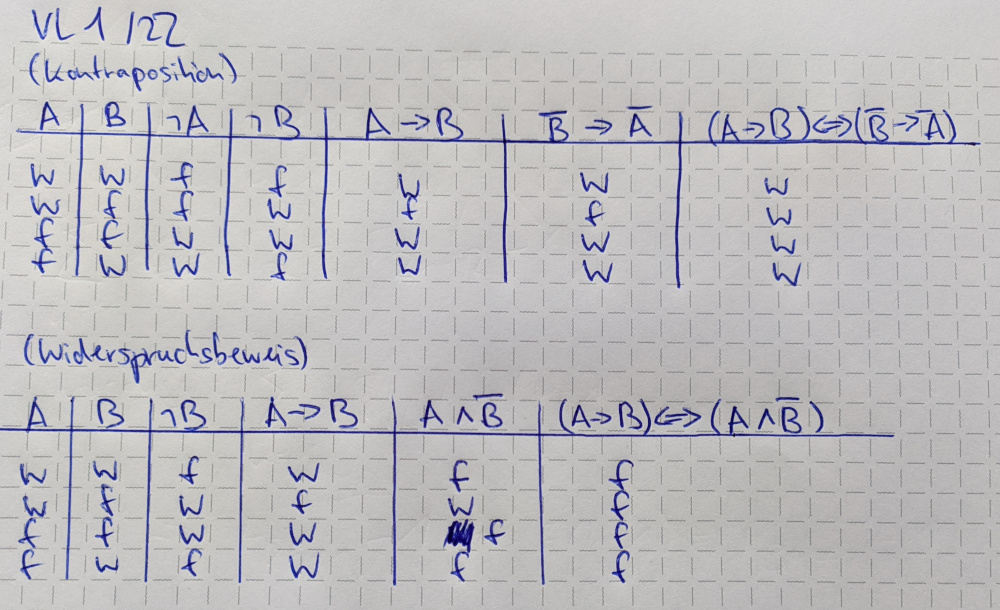 VL 1/22
(Kontraposition)
A B ¬A ¬B A → B B̅ → A̅ (A→B)⇔(B̅→A̅)
w w f f w w w
w f f w f f w
f f w w w w w
f w w f w w w
(Widerspruchsbeweis)
A B ¬B A → B A ∧ B̅ (A→B)⇔(A∧B̅)
w w f w f f
w f w f w f
f f w w f f
f w f w f f